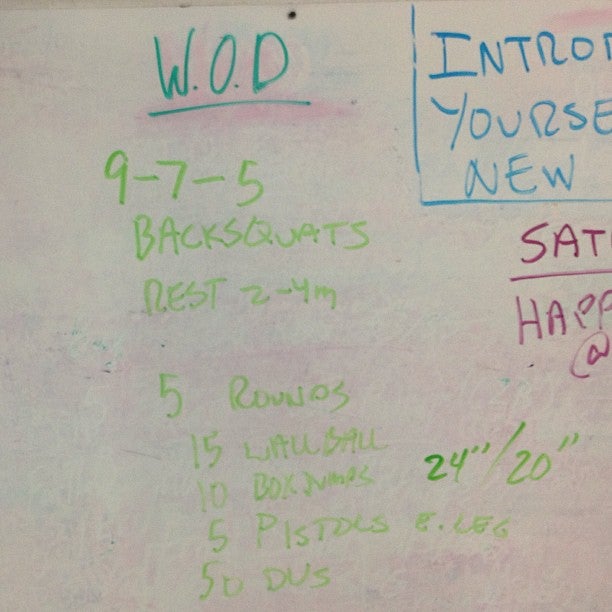 W.O.D
9-7-5
BACKSQUATS
REST 2-4m
5 ROUNDS
15 WALLBALL
10 BOXJUMPS 24"/20"
5 PISTOLS E.LEG
50 DUS
INTRO
YOURSE
NEW
SAT
HAPP
@